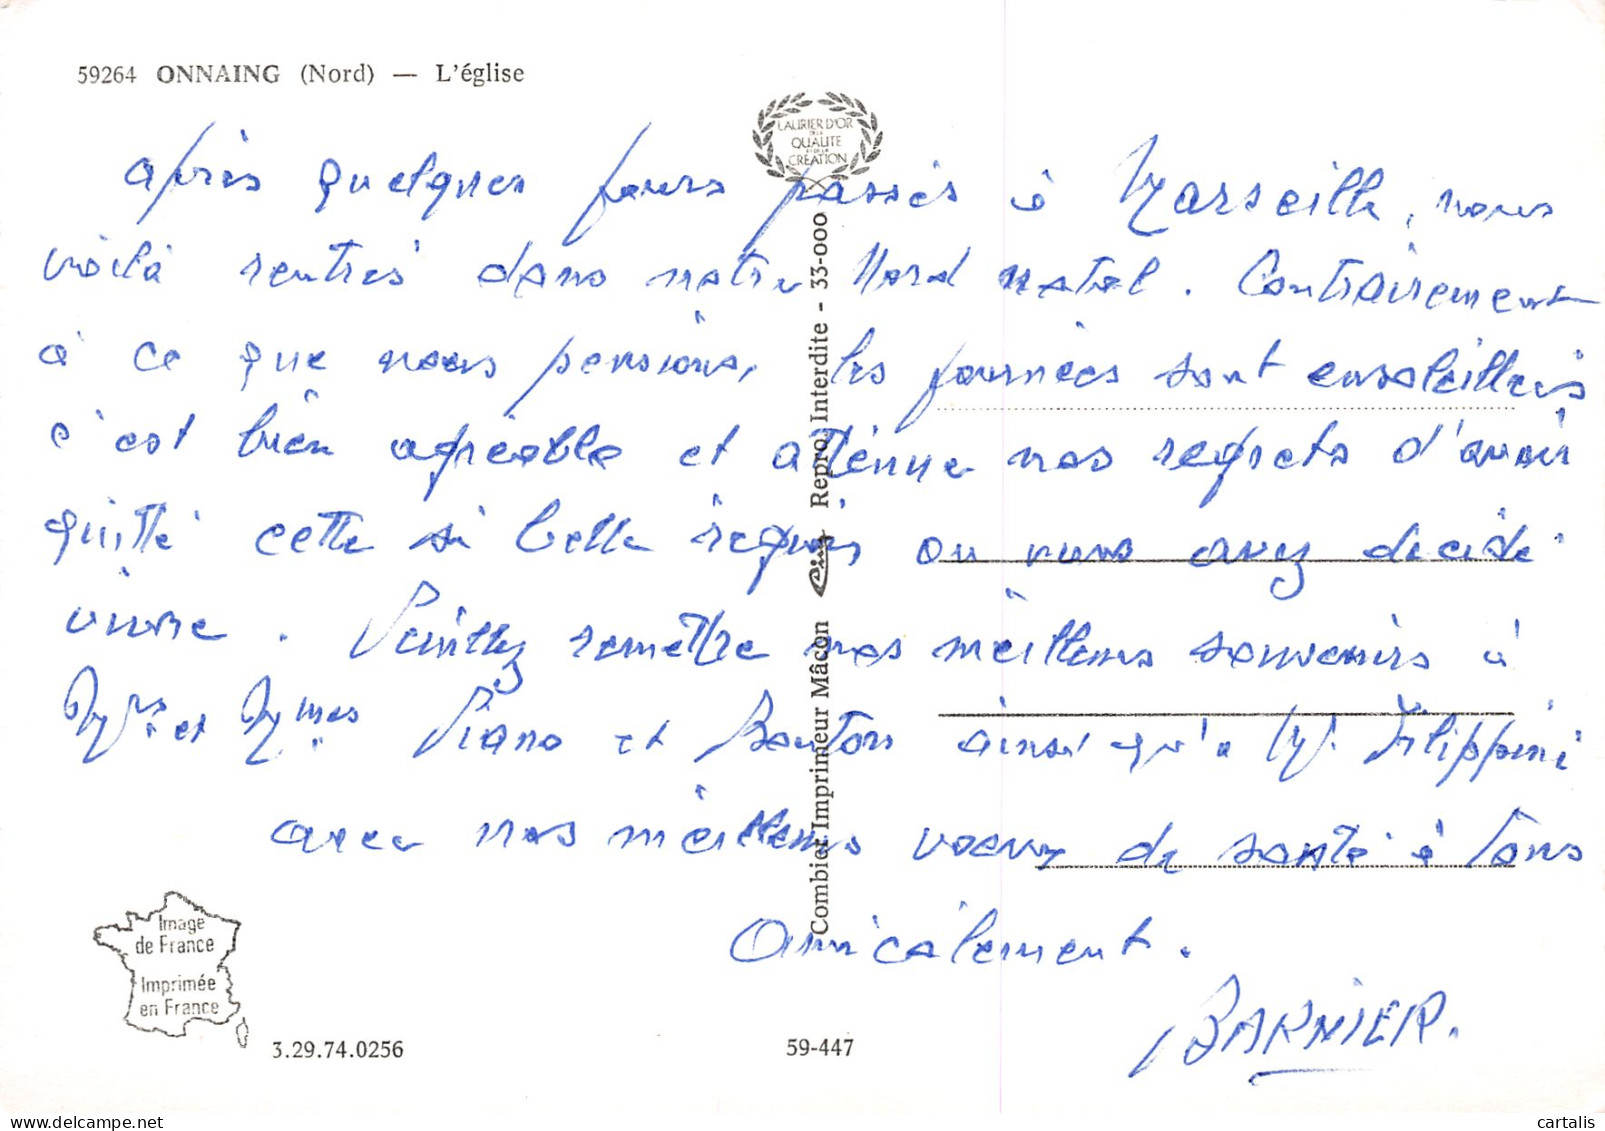 59264 ONNAING (Nord) — L'église
LAURIER D'OR
DE LA
QUALITÉ
ET DE LA
CRÉATION
après quelques jours passés à Marseille, nous
voilà rentrés dans notre Nord natal. Contrairement
à ce que nous pensions, les journées sont ensoleillées
c'est bien agréable et atténue nos regrets d'avoir
quitté cette si belle région ou vous avez décidé
vivre. Veuillez remettre nos meilleurs souvenirs à
Mrs et Mmes Piano et Bouton ainsi qu'à Mr Filippini
avec nos meilleurs voeux de santé à Tous
Amicalement.
BARNIER.
Combier Imprimeur Mâcon Cim Repro Interdite - 33-000
Image
de France
Imprimée
en France
3.29.74.0256
59-447
cartalis